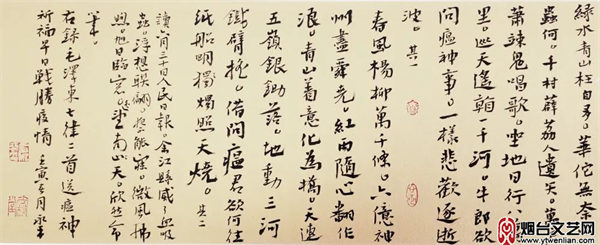 綠水青山枉自多。華佗無奈
蟲何。千村薜荔人遺矢。萬
蕭疏鬼唱歌。坐地日行
里。巡天遙看一千河。牛郎欲
問瘟神事。一樣悲歡逐逝
波。其一
春風楊柳萬千條。六億神
州盡舜堯。紅雨隨心翻作
浪。青山着意化為橋。天連
五嶺銀鋤落。地動三河
鐵臂搖。借問瘟君欲何往
紙船明燭照天燒。其二
讀六月三十日人民日報。余江縣滅了血吸
蟲。浮想聯翩。夜不能寐。微風拂
煦。旭日臨窗。望南山天。欣然命
筆。
右錄毛澤東七律二首送瘟神
祈福早日戰勝疫情 壬寅月永
烟台文艺网
www.ytwenlian.com